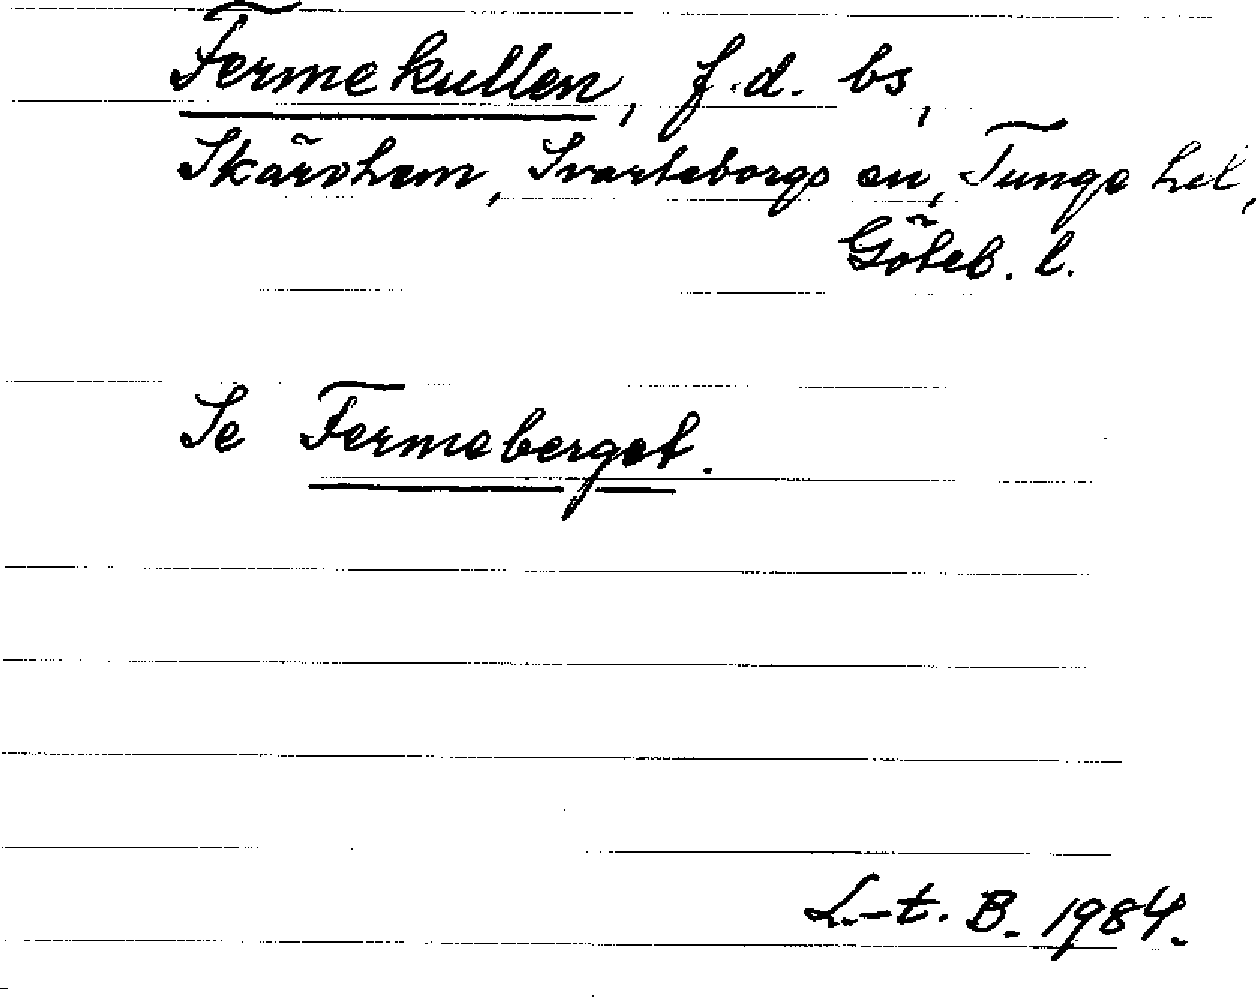 Fermekullen, f.d. bs,
Skärvhem, Svarteborgs sn, Tunge hd,
Göteb. l.
Se Fermeberget.
L-t. B. 1984.